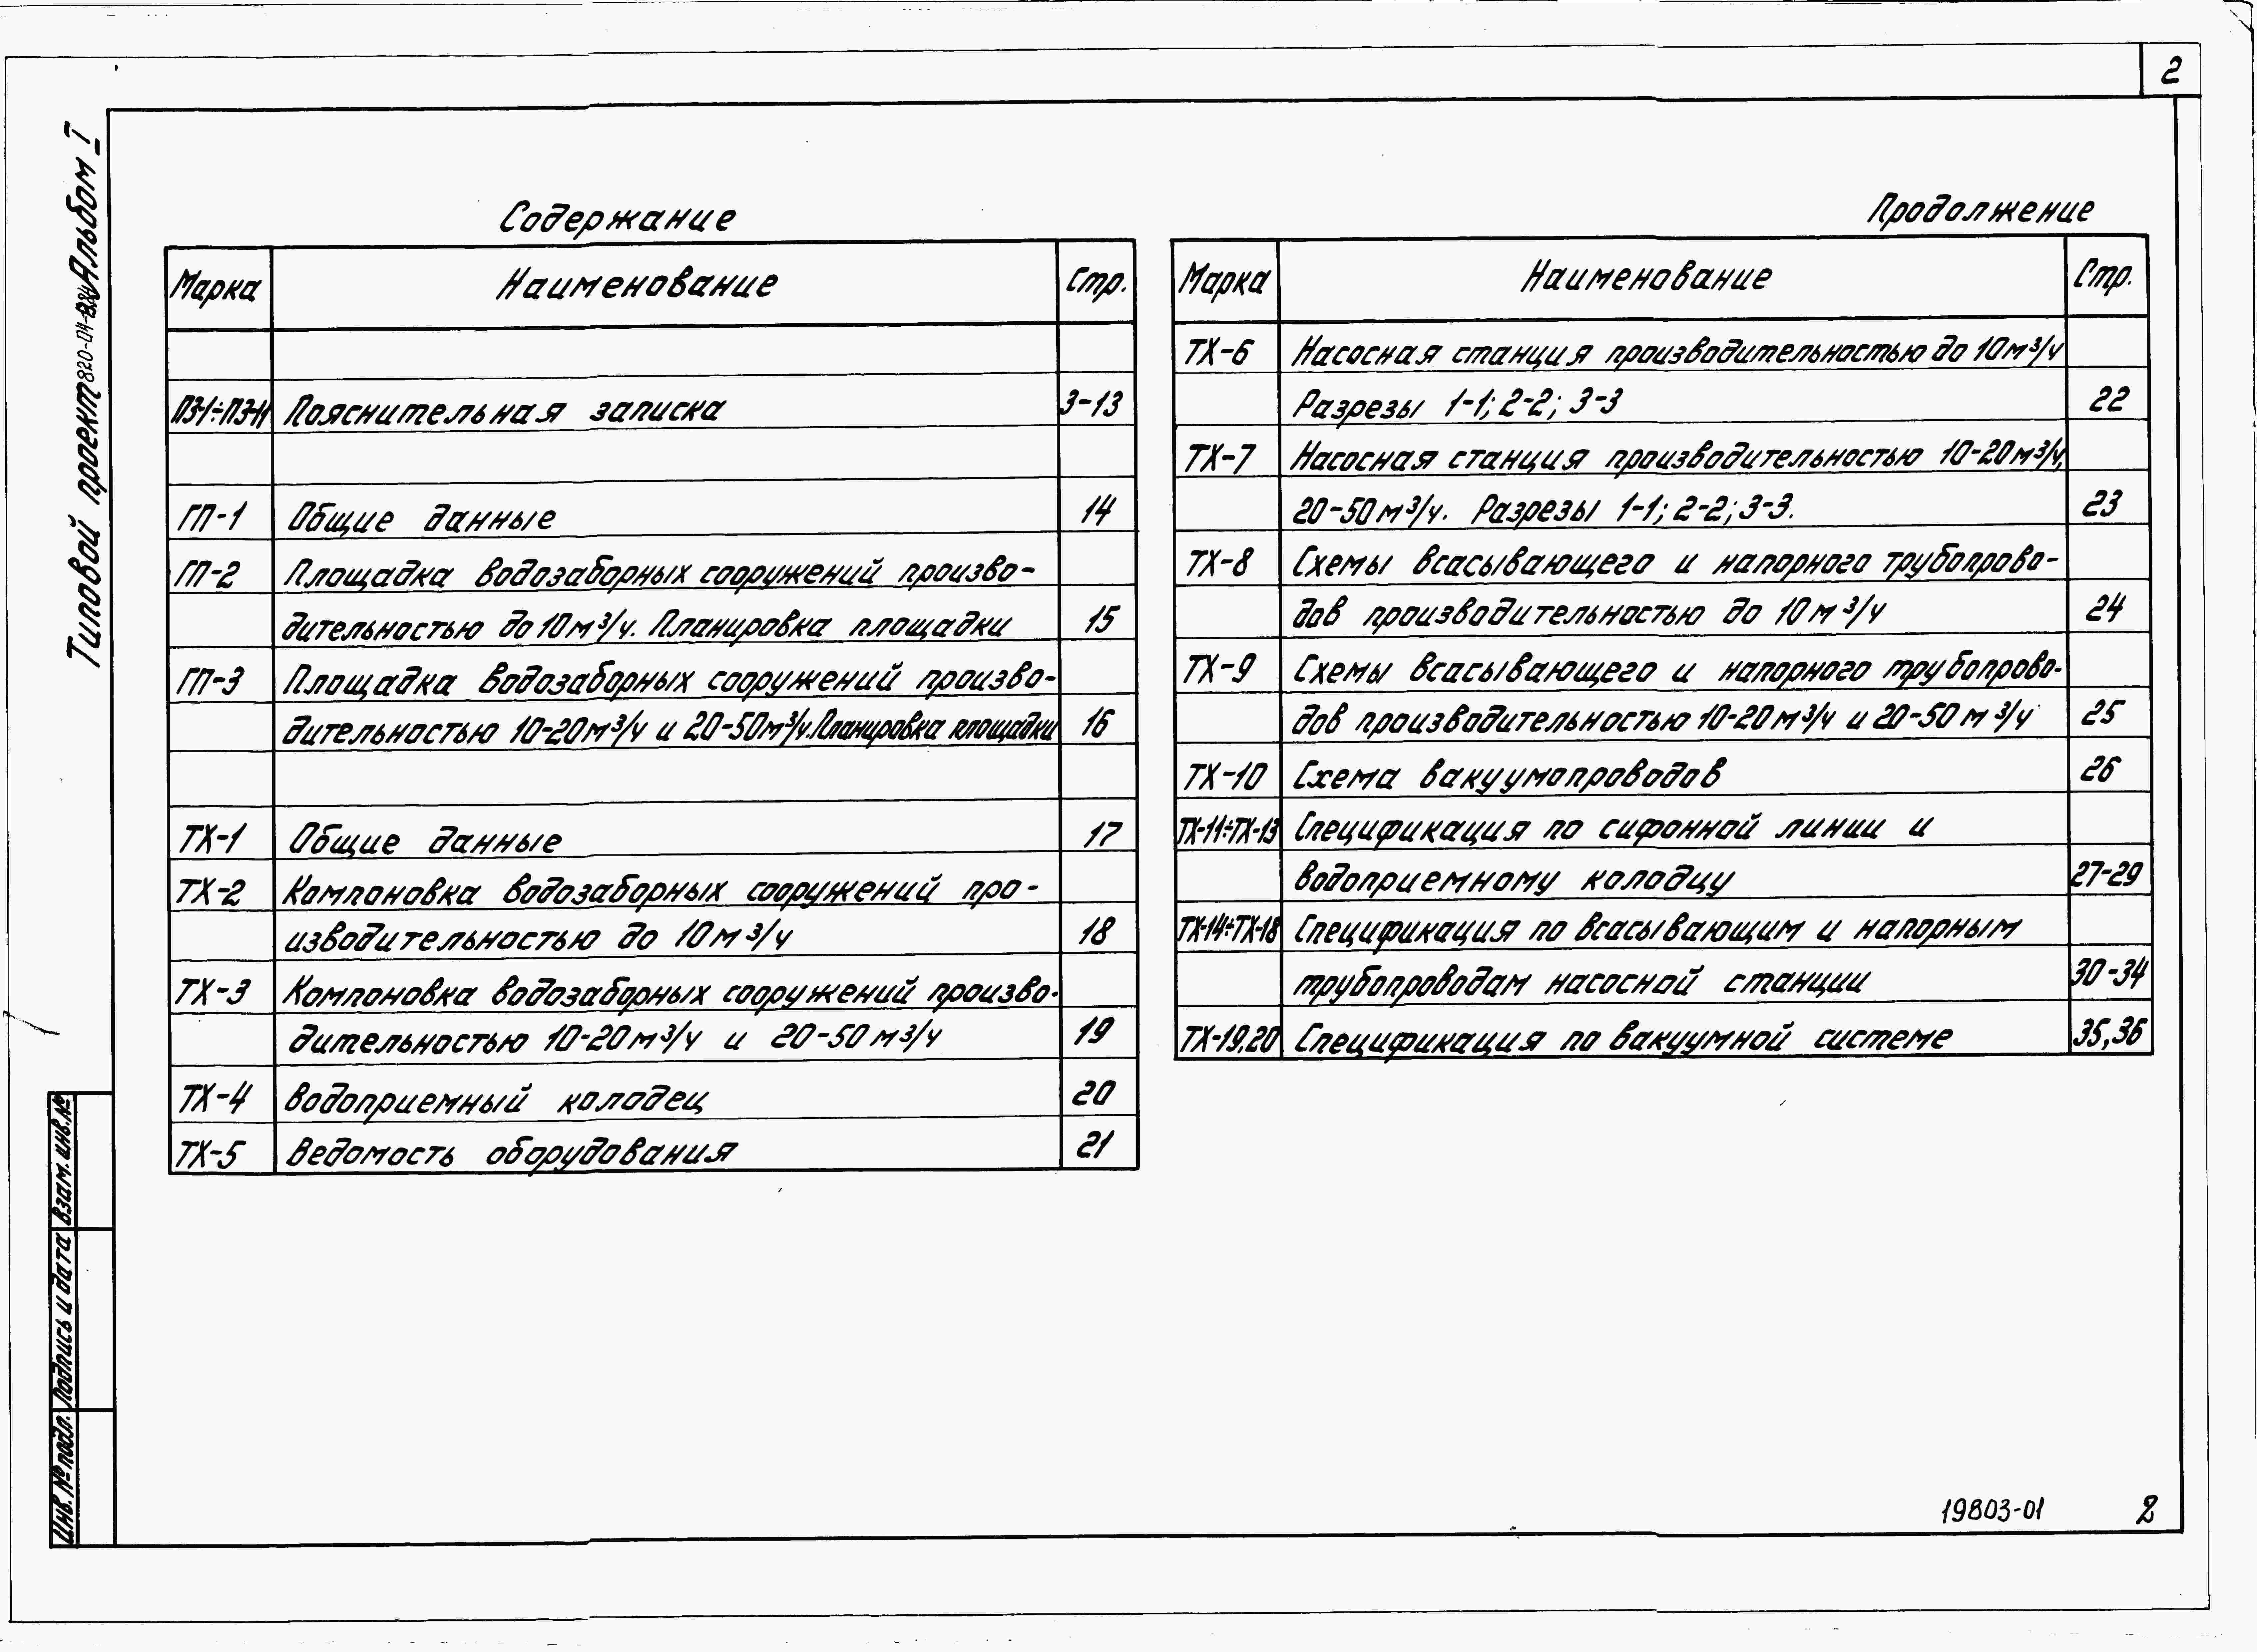 2
Типовой проект 820-04- Альбом I
Содержание
Марка Наименование Стр.
ПЗ-1÷ПЗ-11 Пояснительная записка 3-13
ГП-1 Общие данные 14
ГП-2 Площадка водозаборных сооружений произво-
дительностью до 10 м³/ч. Планировка площадки 15
ГП-3 Площадка водозаборных сооружений произво-
дительностью 10-20 м³/ч и 20-50 м³/ч. Планировка площадки 16
ТХ-1 Общие данные 17
ТХ-2 Компоновка водозаборных сооружений про-
изводительностью до 10 м³/ч 18
ТХ-3 Компоновка водозаборных сооружений произво-
дительностью 10-20 м³/ч и 20-50 м³/ч 19
ТХ-4 Водоприемный колодец 20
ТХ-5 Ведомость оборудования 21
Продолжение
Марка Наименование Стр.
ТХ-6 Насосная станция производительностью до 10 м³/ч
Разрезы 1-1; 2-2; 3-3 22
ТХ-7 Насосная станция производительностью 10-20 м³/ч,
20-50 м³/ч. Разрезы 1-1; 2-2; 3-3. 23
ТХ-8 Схемы всасывающего и напорного трубопрово-
дов производительностью до 10 м³/ч 24
ТХ-9 Схемы всасывающего и напорного трубопрово-
дов производительностью 10-20 м³/ч и 20-50 м³/ч 25
ТХ-10 Схема вакуумопроводов 26
ТХ-11÷ТХ-13 Спецификация по сифонной линии и
водоприемному колодцу 27-29
ТХ-14÷ТХ-18 Спецификация по всасывающим и напорным
трубопроводам насосной станции 30-34
ТХ-19,20 Спецификация по вакуумной системе 35,36
Инв. № подл. Подпись и дата Взам. инв. №
19803-01 2